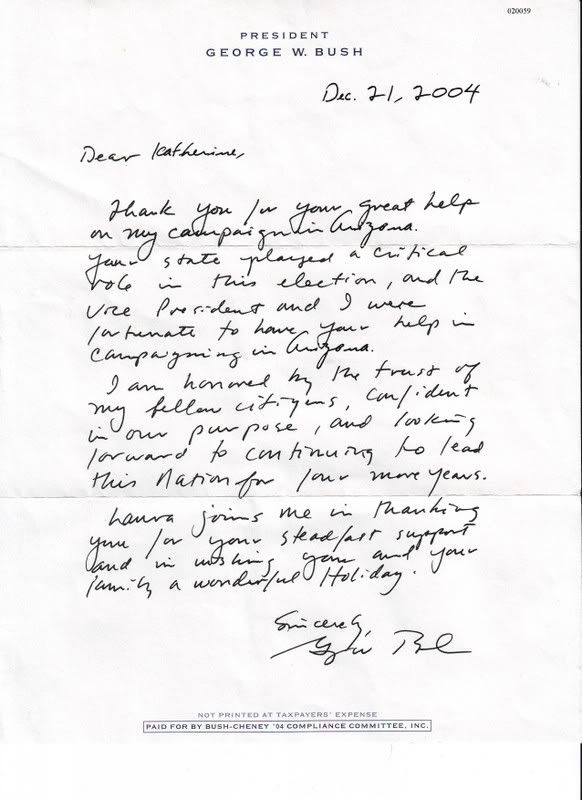 020059
PRESIDENT
GEORGE W. BUSH
Dec. 21, 2004
Dear Katherine,
Thank you for your great help
on my campaign in Arizona.
Your state played a critical
role in this election, and the
Vice President and I were
fortunate to have your help in
campaigning in Arizona.
I am honored by the trust of
my fellow citizens, confident
in our purpose, and looking
forward to continuing to lead
this Nation for four more years.
Laura joins me in thanking
you for your steadfast support
and in wishing you and your
family a wonderful Holiday.
Sincerely,
George Bush
NOT PRINTED AT TAXPAYERS' EXPENSE
PAID FOR BY BUSH-CHENEY '04 COMPLIANCE COMMITTEE, INC.